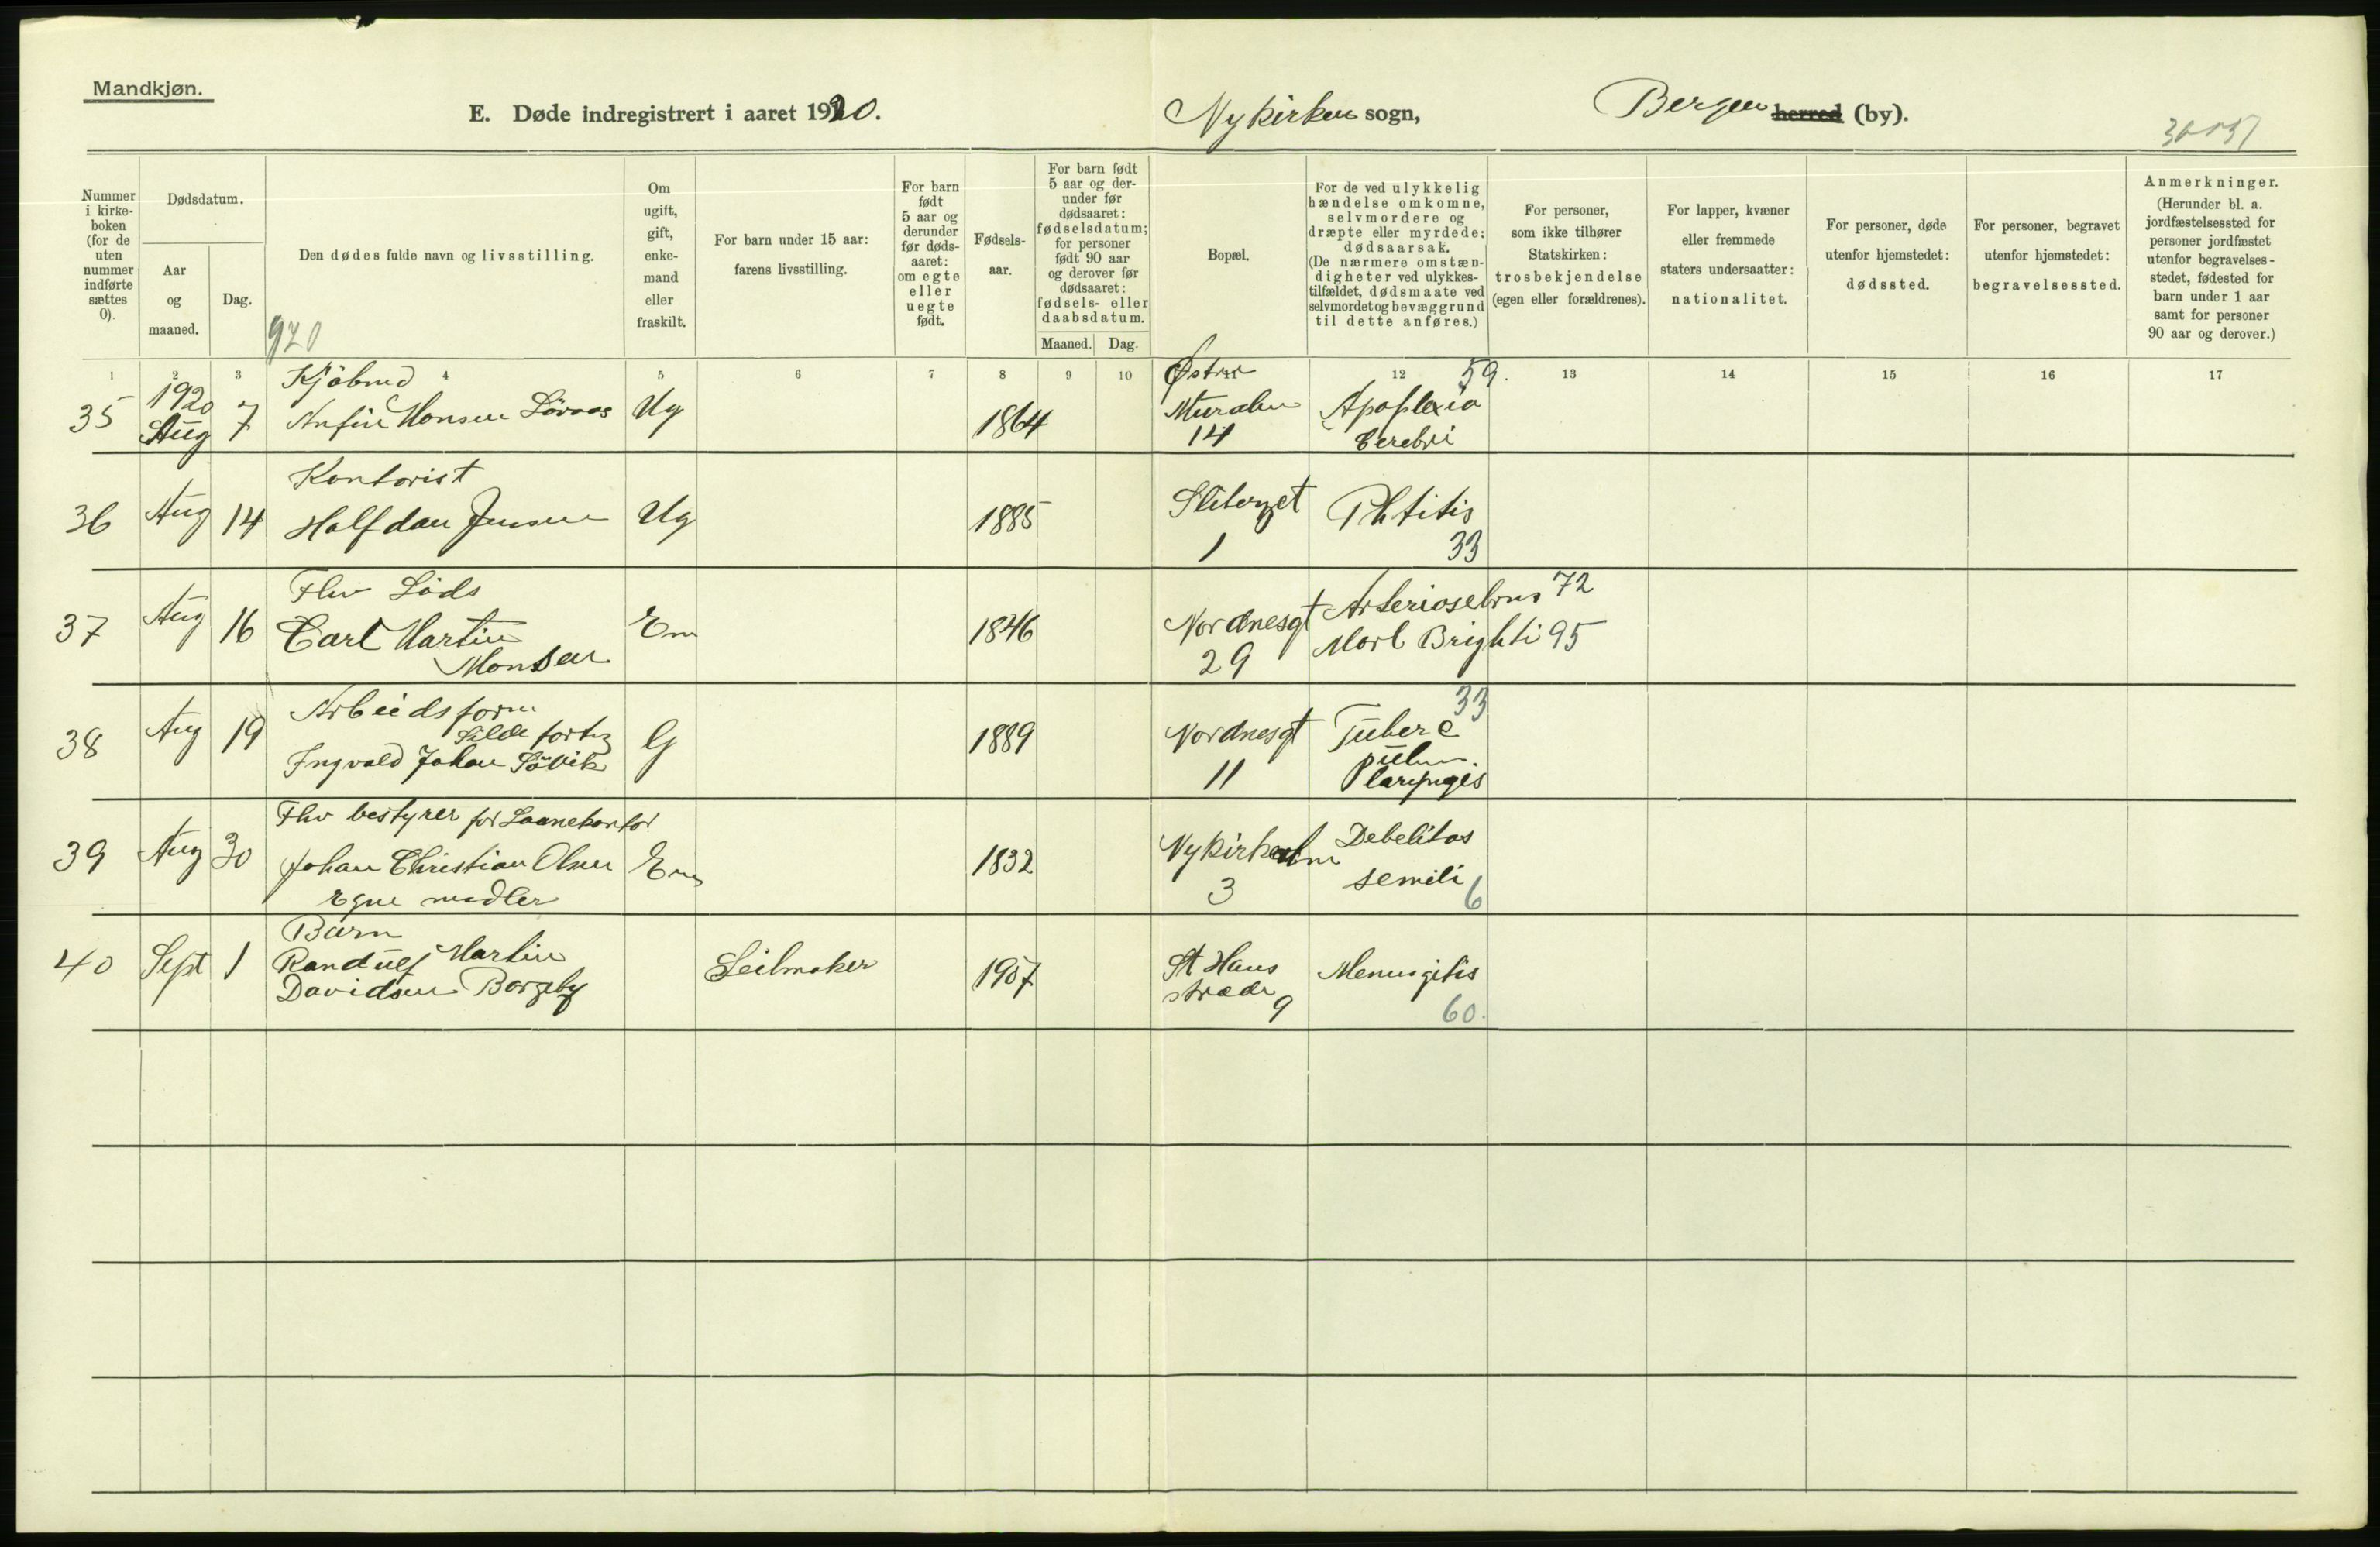 Mandkjøn.
E. Døde indregistrert i aaret 1920.
Nykirken sogn,
Bergen herred (by).
Nummer i kirke-boken (for de uten nummer indførte sættes 0).
Dødsdatum.
Aar og maaned.
Dag.
Den dødes fulde navn og livsstilling.
920
Om ugift, gift, enke-mand eller fraskilt.
For barn under 15 aar: farens livsstilling.
For barn født 5 aar og derunder før døds-aaret: om egte eller uegte født.
Fødsels-aar.
For barn født 5 aar og der-under før dødsaaret: fødselsdatum; for personer født 90 aar og derover før dødsaaret: fødsels- eller daabsdatum.
Maaned. Dag.
Bopæl.
For de ved ulykkelig hændelse omkomne, selvmordere og dræpte eller myrdede: dødsaarsak. (De nærmere omstæn-digheter ved ulykkes-tilfældet, dødsmaate ved selvmordet og bevæggrund til dette anføres.)
For personer, som ikke tilhører Statskirken: trosbekjendelse (egen eller forældrenes).
For lapper, kvæner eller fremmede staters undersaatter: nationalitet.
For personer, døde utenfor hjemstedet: dødssted.
For personer, begravet utenfor hjemstedet: begravelsessted.
Anmerkninger. (Herunder bl. a. jordfæstelsessted for personer jordfæstet utenfor begravelses-stedet, fødested for barn under 1 aar samt for personer 90 aar og derover.)
1 2 3 4 5 6 7 8 9 10 12 13 14 15 16 17
35 1920 Aug 7 Kjöbmd
Anfin Monsen Ug 1864 Østre
Muralm
14 Apoplexia
Cerebri 59.
36 Aug 14 Kontorist
Halfdan Jensen Ug 1885
1 Phtitis
33
37 Aug 16 Flw Lods
Carl Martin
Monsen Em 1846 Nordnesgt
29 72
Morb Brighti 95
38 Aug 19 Arbeidsform
Ingvald Johan Lövik G 1889 Nordnesgt
11 33
Tuberc
pulm.
laryngis
39 Aug 30 Flw bestyrer for Laanekontor
Johan Christian Olsen
Egne midler Em 1832
3 Debelitas
senili
6
40 Sept 1 Barn
Randulf Martin
Davidsen Borgeby Seilmaker 1907 St Hans
stræde
9 Meningitis
60.